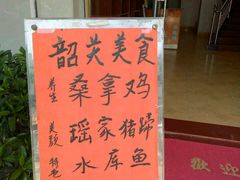 韶关美食
养生 桑拿鸡
美颜 瑶家猪蹄
特色 水库鱼
欢迎